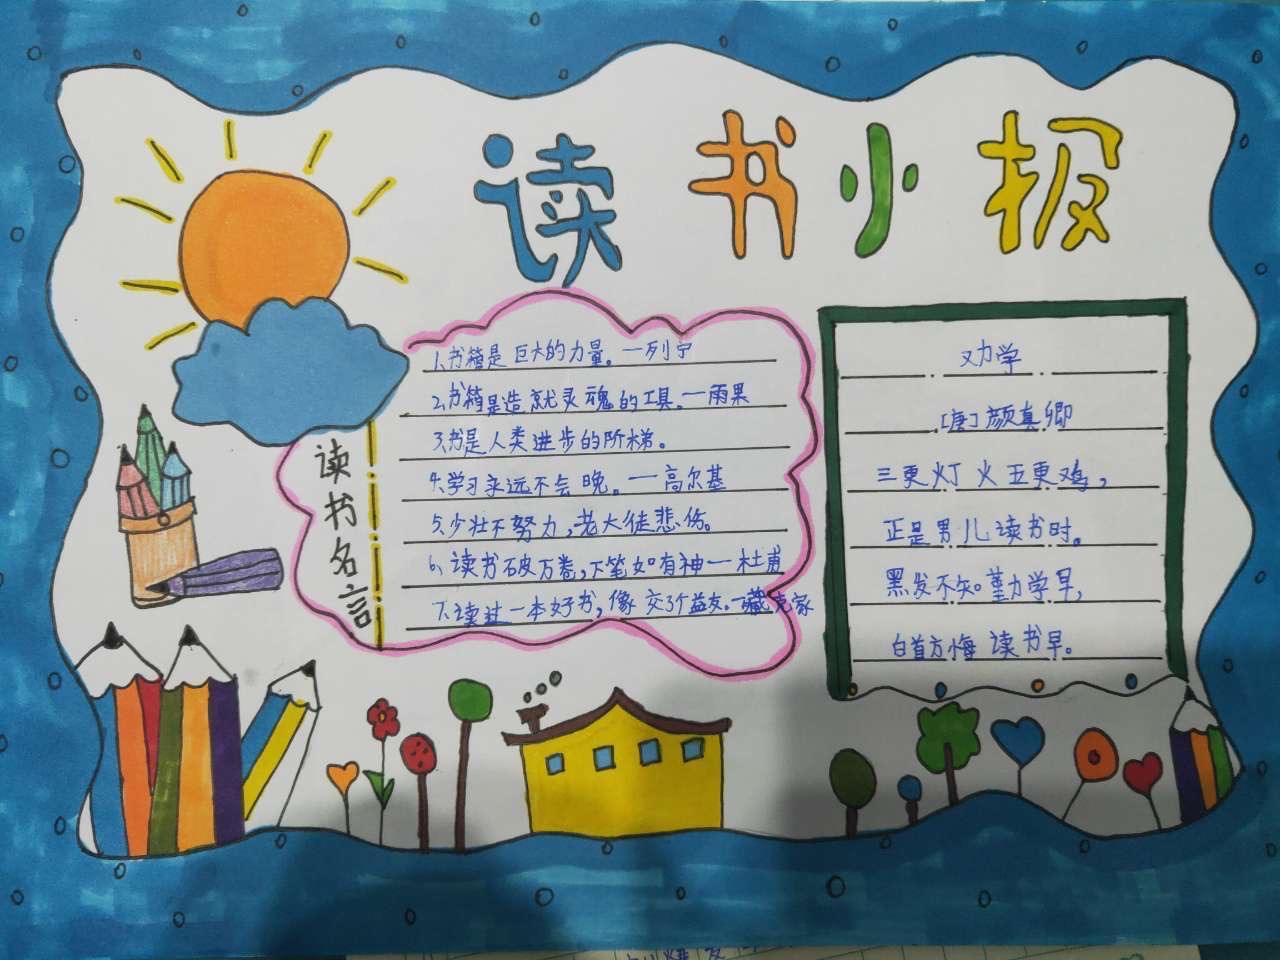 读书小报
读书名言
1.书籍是巨大的力量。一列宁
2.书籍是造就灵魂的工具。一雨果
3.书是人类进步的阶梯。
4.学习永远不会晚。一高尔基
5.少壮不努力,老大徒悲伤。
6、读书破万卷,下笔如有神一杜甫
7.读过一本好书,像交了个益友。一臧克家
劝学
[唐]颜真卿
三更灯火五更鸡,
正是男儿读书时。
黑发不知勤学早,
白首方悔读书早。